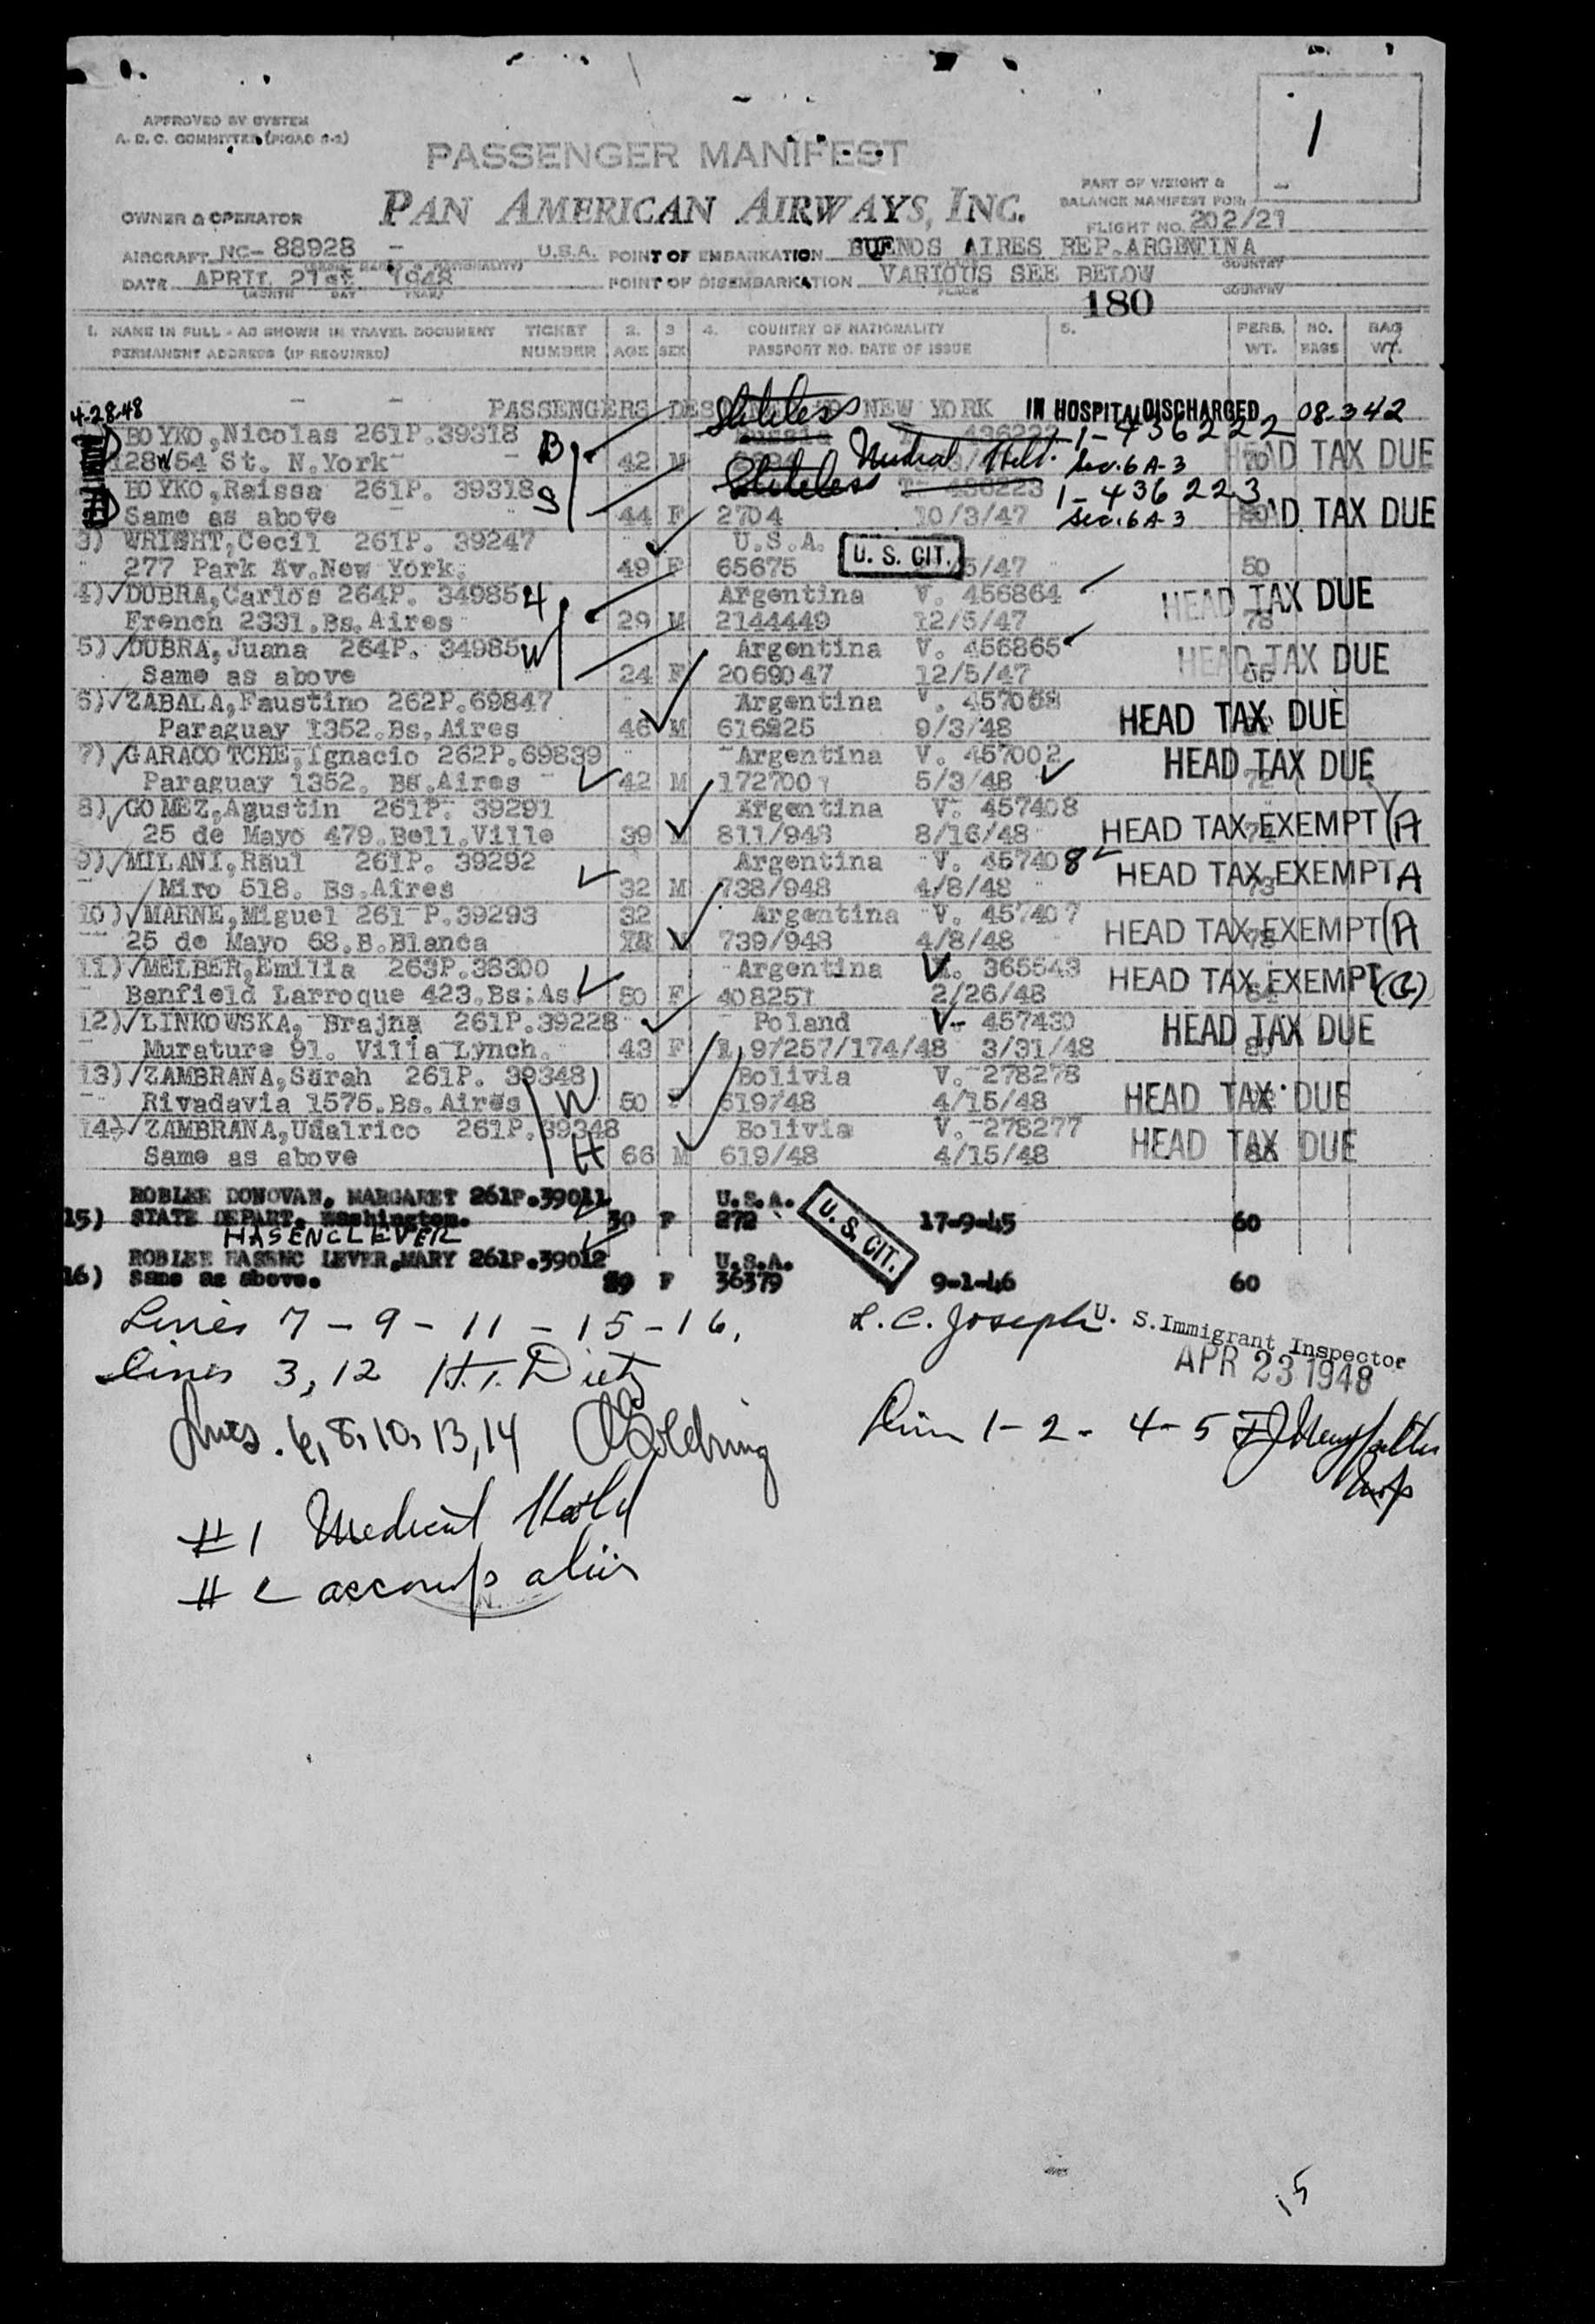 1
APPROVED BY SYSTEM
A. D. C. COMMITTEE (PIOAO 2-2)
PASSENGER MANIFEST
PAN AMERICAN AIRWAYS, INC.
PART OF WEIGHT &
BALANCE MANIFEST FOR:
OWNER & OPERATOR
FLIGHT NO. 202/21
AIRCRAFT NC- 88928 - U.S.A. POINT OF EMBARKATION BUENOS AIRES REP.ARGENTINA
COUNTRY
DATE APRIL 21st 1948 POINT OF DISEMBARKATION VARIOUS SEE BELOW
(MONTH DAY YEAR) PLACE COUNTRY
180
1. NAME IN FULL - AS SHOWN IN TRAVEL DOCUMENT TICKET 2. 3 4. COUNTRY OF NATIONALITY 5. PERS. NO. BAG
PERMANENT ADDRESS (IF REQUIRED) NUMBER AGE SEX PASSPORT NO. DATE OF ISSUE WT. BAGS WT.
4-28-48 PASSENGERS DESTINED TO NEW YORK IN HOSPITAL DISCHARGED 08-342
BOYKO,Nicolas 261P.39318 B Stateless Russia 436222 1-436222
128W54 St. N.York 42 M Medical Held. Sec. 6 A-3 70 HEAD TAX DUE
BOYKO,Raissa 261P. 39318 S Stateless 436223 1-436223
Same as above 44 F 2704 10/3/47 Sec. 6 A-3 HEAD TAX DUE
3) WRIGHT,Cecil 261P. 39247 U.S.A.
277 Park Av.New York. 49 F 65675 U. S. CIT. 5/47 50
4) DUBRA,Carlos 264P. 34985 H Argentina V. 456864
French 2331.Bs.Aires 29 M 2144449 12/5/47 78 HEAD TAX DUE
5) DUBRA,Juana 264P. 34985 W Argentina V. 456865
Same as above 24 F 2069047 12/5/47 HEAD TAX DUE
6) ZABALA,Faustino 262P.69847 Argentina V. 457058
Paraguay 1352.Bs.Aires 46 M 616825 9/3/48 HEAD TAX DUE
7) GARACOTCHE,Ignacio 262P.69839 Argentina V. 457002
Paraguay 1352. Bs.Aires 42 M 1727001 5/3/48 72 HEAD TAX DUE
8) GOMEZ,Agustin 261P. 39291 Argentina V. 457408
25 de Mayo 479.Bell.Ville 39 M 811/948 8/16/48 HEAD TAX EXEMPT (A
9) MILANI,Raul 261P. 39292 Argentina V. 457408
Miro 518. Bs.Aires 32 M 738/948 4/8/48 73 HEAD TAX EXEMPT A
10) MARNE,Miguel 261 P.39293 32 Argentina V. 457407
25 de Mayo 68.B.Blanca M 739/948 4/8/48 HEAD TAX EXEMPT (A
11) MELBER,Emilia 263P.38300 Argentina V. 365543
Banfield Larroque 423.Bs.As. 50 F 408251 2/26/48 HEAD TAX EXEMPT (C)
12) LINKOWSKA, Brajna 261P.39228 Poland V- 457430
Murature 91. Villa Lynch. 43 F 9/257/174/48 3/31/48 80 HEAD TAX DUE
13) ZAMBRANA,Sarah 261P. 39348 Bolivia V. 278278
Rivadavia 1575.Bs.Aires W 50 F 619/48 4/15/48 HEAD TAX DUE
14) ZAMBRANA,Udalrico 261P.39348 Bolivia V. 278277
Same as above H 66 M 619/48 4/15/48 88 HEAD TAX DUE
ROBLEE DONOVAN, MARGARET 261P.39011 U.S.A.
15) STATE DEPART. Washington. 30 F 272 U. S. CIT. 17-9-45 60
HASENCLEVER
ROBLEE HASENC LEVER,MARY 261P.39012 U.S.A.
16) Same as above. 39 F 36379 9-1-46 60
Lines 7-9-11-15-16, L.C. Joseph U. S. Immigrant Inspector
APR 23 1948
Lines 3,12 H.T. Dietz
Lines. 6,8,10,13,14 Goldring
Lines 1-2-4-5
Insp
#1 Medical Hold
#2 accomp alien
15